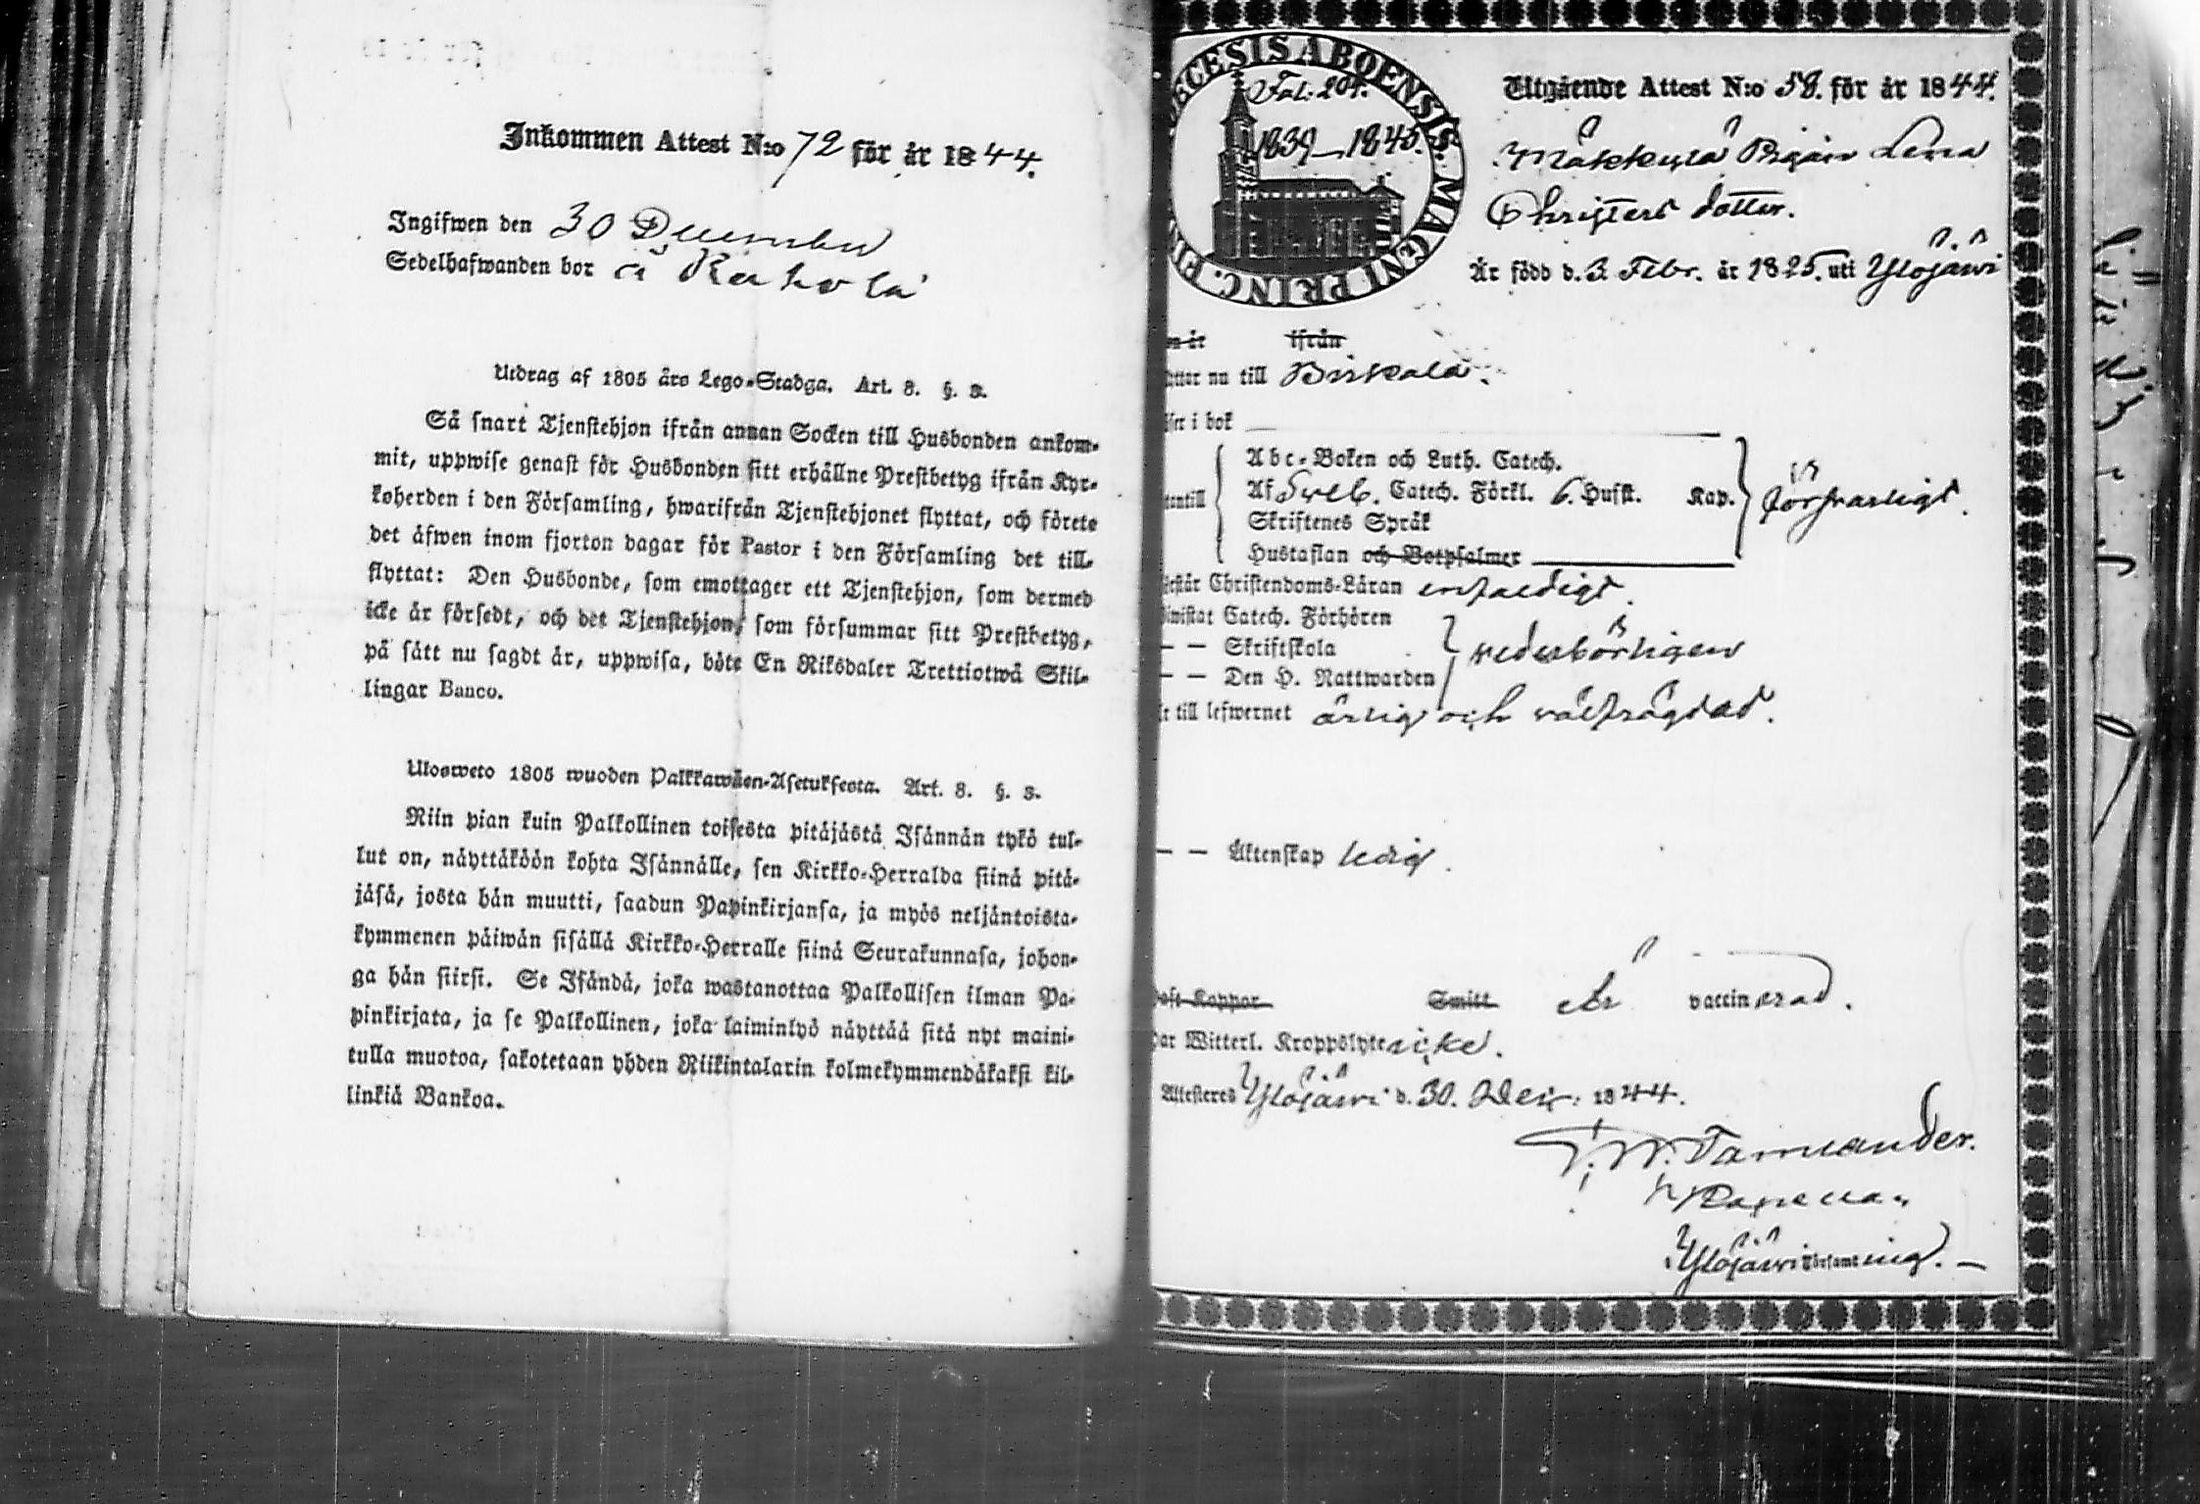 Inkommen Attest N:o 72 för år 1844.
Ingifwen den 30 December
Sedelhafwanden bor å Rahola
Utdrag af 1805 års Lego-Stadga. Art. 8. §. 3.
Så snart Tjenstehjon ifrån annan Socken till Husbonden ankom-
mit, uppwise genast för Husbonden sitt erhållne Prestbetyg ifrån Kyr-
koherden i den Församling, hwarifrån Tjenstehjonet flyttat, och förete
det äfwen inom fjorton dagar för Pastor i den Församling det till-
flyttat: Den Husbonde, som emottager ett Tjenstehjon, som dermed
icke är försedt, och det Tjenstehjon, som försummar sitt Prestbetyg,
på sätt nu sagdt är, uppwisa, böte En Riksdaler Trettiotwå Skil-
lingar Banco.
Ulosweto 1805 wuoden Palkkawäen-Asetuksesta. Art. 8. §. 3.
Niin pian kuin Palkollinen toisesta pitäjästä Isännän tykö tul-
lut on, näyttäköön kohta Isännälle, sen Kirkko-Herralda siinä pitä-
jäsä, josta hän muutti, saadun Papinkirjansa, ja myös neljäntoista-
kymmenen päiwän sisällä Kirkko-Herralle siinä Seurakunnasa, johon-
ga hän siirsi. Se Isändä, joka wastanottaa Palkollisen ilman Pa-
pinkirjata, ja se Palkollinen, joka laiminlyö näyttää sitä nyt maini-
tulla muotoa, sakotetaan yhden Riikintalarin kolmekymmendäkaksi kil-
linkiä Bankoa.
ECESIS ABOENSIS. MAGNI PRINC. FI
Fol. 204.
1839–1845.
Utgående Attest N:o 58. för år 1844.
Mäkkylä Pigan Lena
Christers dotter.
Är född d. 3 Febr. år 1825. uti Ylöjärvi
n år ifrån
ttar nu till Birkala.
ser i bok
Abc-Boken och Luth. Catech.
Af Sveb. Catech. Förkl. 6. Hufst. Kap.
Skriftenes Språk
Hustaflan och Botpsalmer
entill
försvarligt.
rstår Christendoms-Läran enfaldigt.
wistat Catech. Förhören
– – Skriftskola
– – Den H. Nattwarden
vederbörligen
r till lefwernet ärlig och välfrägdad.
– – Äktenskap ledig.
aft Koppor Smitt Är vaccinerad.
ar Witterl. Kroppslyte icke.
Attesteres Ylöjärvi d. 30. Dec. 1844.
Tamlander.
Kapellan
Ylöjärvi Församling. –